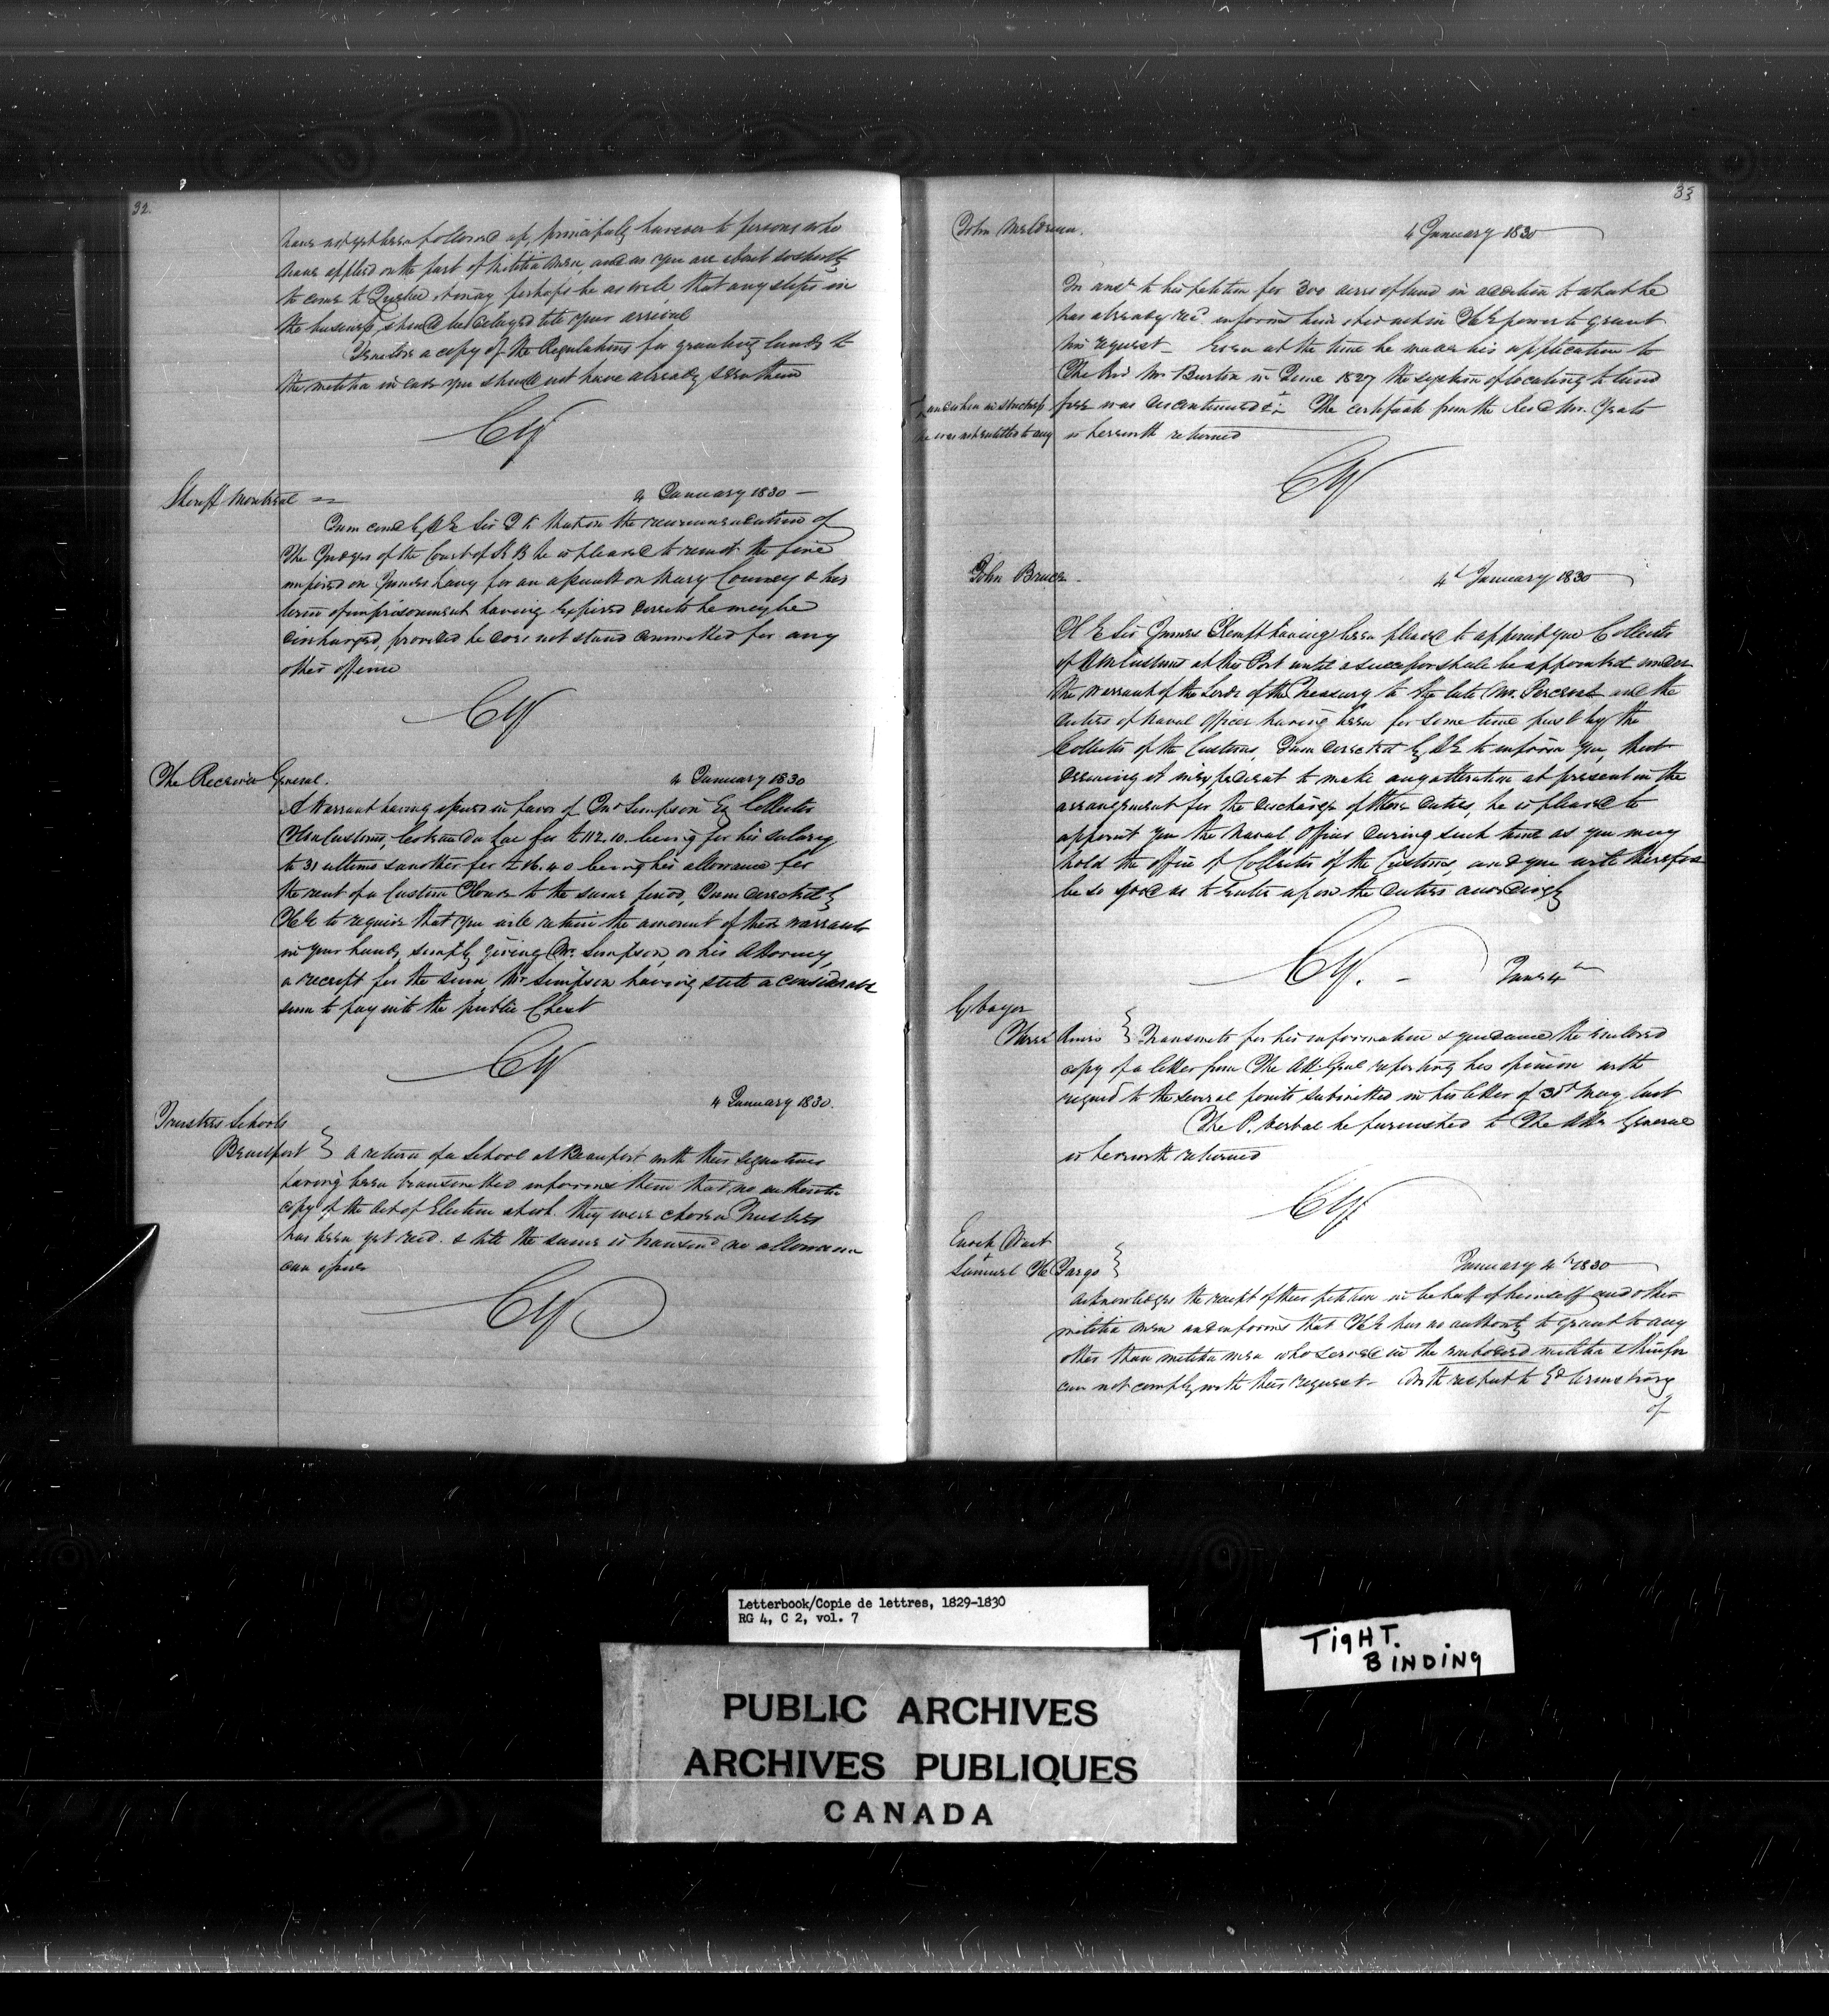 32.
have not yet been followed up, principally however to persons who
have applied on the part of Militia Men, and as you are about so shortly
to come to Quebec it may perhaps be as well that any steps in
the business should be delayed till your arrival
Transmit a copy of the Regulations for granting lands to
the militia in case you should not have already seen them
CY
Sheriff Montreal
4 January 1830 —
I am comd by H E Sir J K that on the recommendation of
The Judges of the Court of K B he is pleased to remit the fine
imposed on James Lavy for an assault on Mary Conney & his
term of imprisonment having expired directs he may be
discharged, provided he does not stand committed for any
other offence
CY
The Receiver General.
4 January 1830
A Warrant having issued in favor of Jno Simpson Esq Collector
of Customs, Coteau du Lac for £112.10. being for his salary
to 31 ultimo & another for £16.4.0 being his allowance for
the rent of a Custom House to the same period, I am directed by
H E to require that you will retain the amount of these warrants
in your hands, simply giving Mr. Simpson, or his Attorney,
a receipt for the sum, Mr Simpson having still a considerable
sum to pay into the public Chest
CY
4 January 1830.
Trustees Schools
Beauport } A return of a School at Beauport with their signatures
having been transmitted informs them that no authentic
copy of the Act of Election at wh. they were chosen Trustees
has been yet recd. & till the same is transmd no allowance
can issue
CY
33
John
4 January 1830
In ansr to his petition for 300 acres of land in addition to what he
has already recd. informs him it is not in H E power to grant
his request — Even at the time he made his application to
The Revd Mr. Burton in June 1827 the system of locating to land
free was discontinued & + The certificate from the Revd Mr.
is herewith returned
+ and when in strictness
he was not entitled to any
CY
John Bruce
4th January 1830
H E Sir James Kempt having been pleased to appoint you Collector
of H M Customs at this Port until a successor shall be appointed under
the warrant of the Lords of the Treasury to the late Mr. Perceval and the
duties of Naval Officer having been for some time past by the
Collector of the Customs, I am directed by H E to inform you, that
deeming it inexpedient to make any alteration at present in the
arrangement for the discharge of those duties, he is pleased to
appoint you the Naval Officer during such time as you may
hold the office of Collector of the Customs, and you will therefore
be so good as to enter upon the duties accordingly
CY. —
Jany 4th
Three Rivers } Transmits for his information & guidance the enclosed
copy of a letter from The Att: Genl reporting his opinion with
regard to the several points submitted in his letter of 31st May last
The P. Verbal he furnished to The Atty General
is herewith returned
CY
Enoch
&
Samuel H }
January 4th 1830
Acknowledges the receipt of their petition in behalf of himself and other
militia men and informs that H E has no authority to grant to any
other than militia men who served in the embodied militia & therefore
can not comply with their request — With respect to Ed Armstrong
of
Letterbook/Copie de lettres, 1829-1830
RG 4, C 2, vol. 7
TIGHT.
BINDING
PUBLIC ARCHIVES
ARCHIVES PUBLIQUES
CANADA